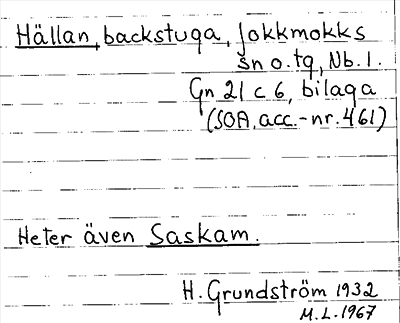 Hällan, backstuga, Jokkmokks
sn o. tg, Nb. l.
Gn 21 c 6, bilaga
(SOA, acc.-nr. 461)
Heter även Saskam.
H. Grundström 1932
M.L. 1967